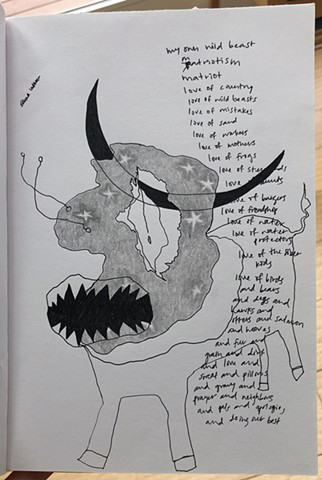 my own wild beast
matriotism
matriot
love of country
love of wild beasts
love of mistakes
love of sand
love of workers
love of mothers
love of frogs
love of
love
love of burgers
love of
love of water
love of water
protectors
love of the river
kids
love of birds
and bears
and dogs and
hawks and
otters and salmon
and wolves
and fir and
grain and dirt
and love and
sweat and pillows
and gravy and
prayer and neighbors
and pals and apologies,
and doing our best